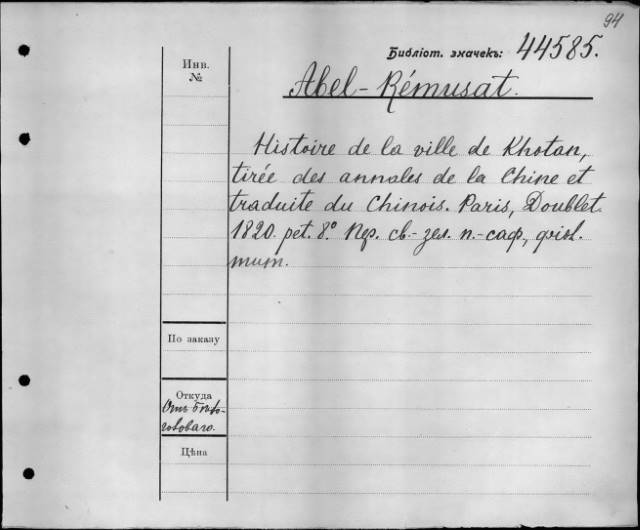 94
Библіот. значекъ: 44585.
Инв.
№
Abel-Rémusat.
Histoire de la ville de Khotan,
tirée des annales de la Chine et
traduite du Chinois. Paris, Doublet.
1820. pet. 8.° Пер. св.-зел. п.-саф,
тит.
По заказу
Откуда
Отъ
Цѣна